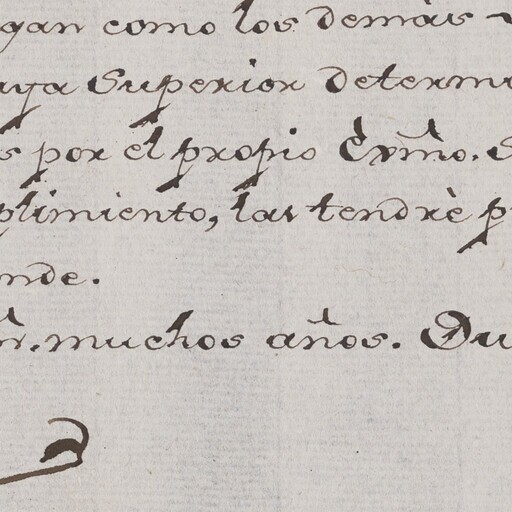 gan como los demàs
aya Superior determi
s por el propio Exmo. S
plimiento, las tendrè p
nde.
muchos años. Qu